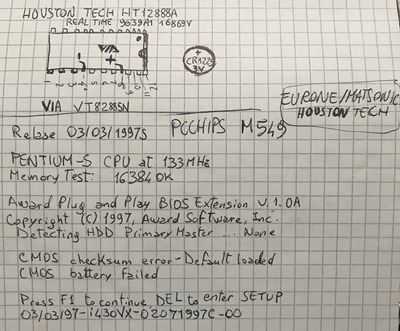 HOUSTON TECH HT12888A
REAL TIME 9639A1 16869V
VIA
CR1225
3V
1 2 3 4 5 6 7 8 9 10 11 12
VIA VT82885N
EURONE/MATSONIC
HOUSTON TECH
Relase 03/03/1997S PCCHIPS M549
PENTIUM-S CPU at 133MHz
Memory Test: 16384OK
Award Plug and Play BIOS Extension v.1.0A
Copyright (C) 1997, Award Software, Inc.
Detecting HDD Primary Master ... None
CMOS checksum error - Default loaded
CMOS battery failed
Press F1 to continue, DEL to enter SETUP
03/03/97-i430VX-02071997C-00